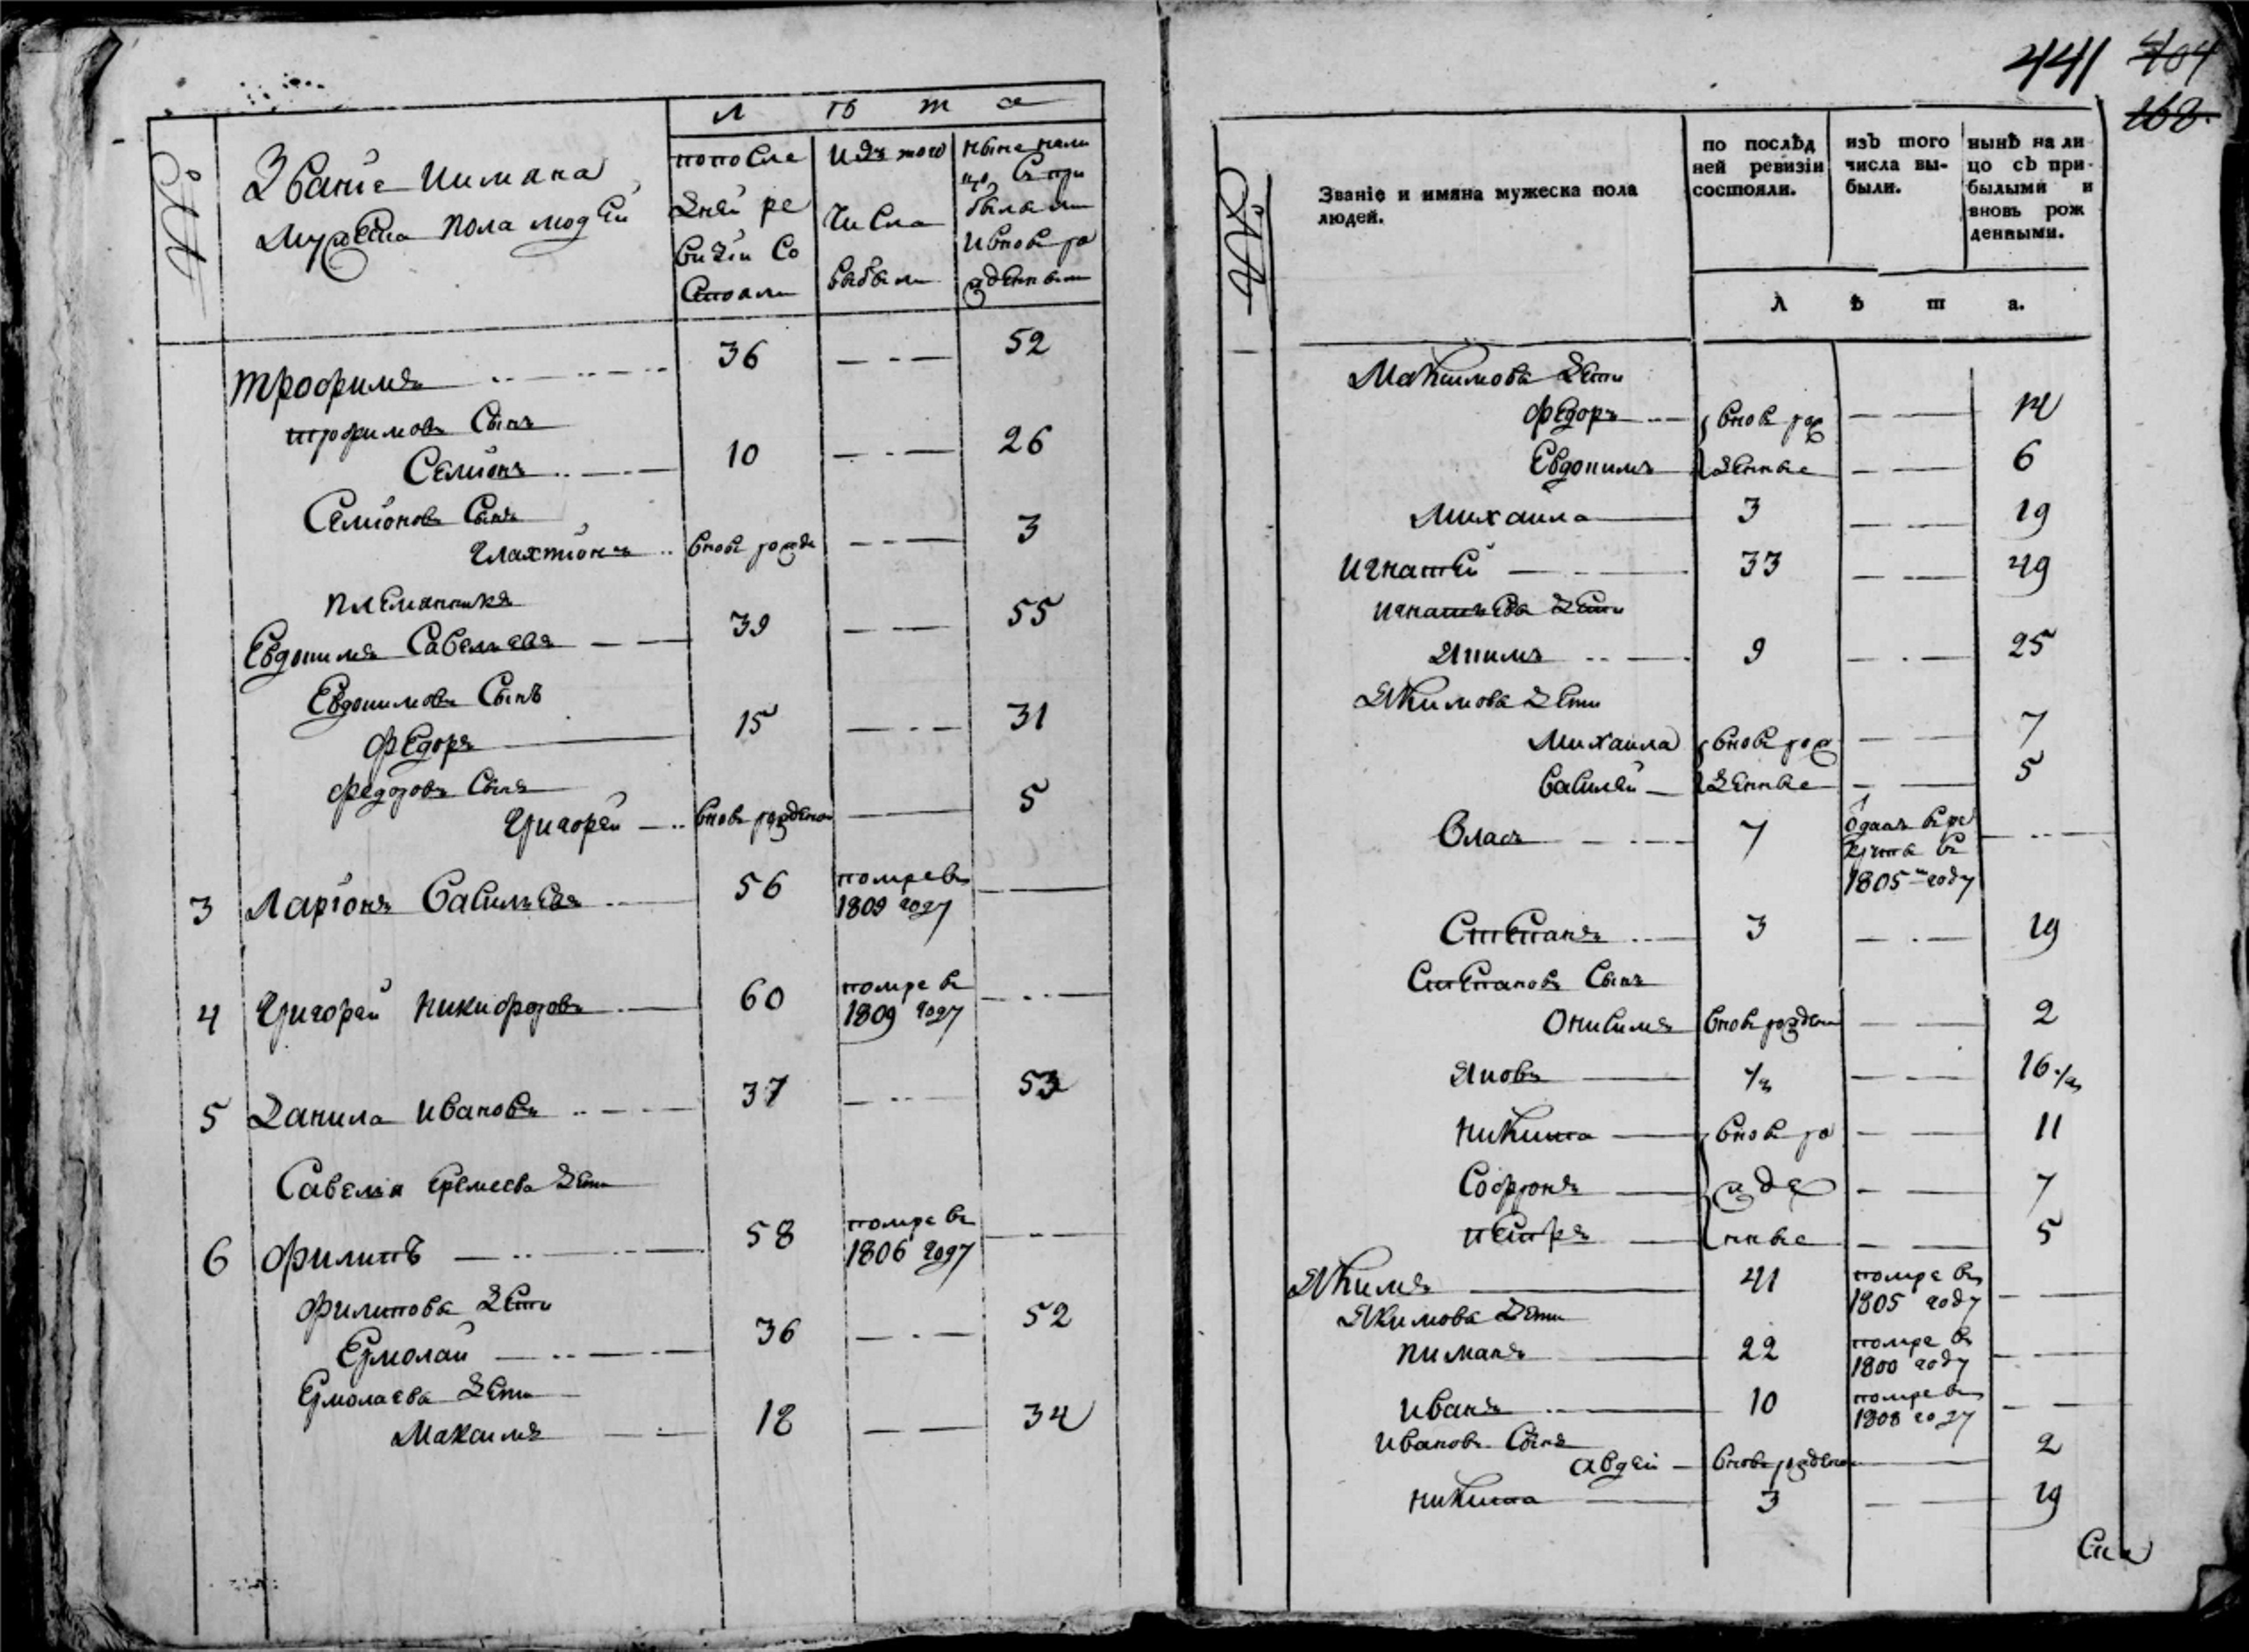 Л ѣ т а
№
Званіе и имяна
мужеска пола людей
по после
дней ре
визіи со
стояли
изъ того
числа
выбыли
ныне нали
цо съ при
былыми
и вновь ро
жденными
трофимъ 36 52
трофимовъ сынъ
Семіонъ 10 26
Семіоновъ сынъ
Галахтіонъ вновь рожде 3
племянникъ
Евдокимъ Савельевъ 39 55
Евдокимовъ сынъ
Федоръ 15 31
Федоровъ сынъ
Григорей вновь рожденой 5
3 Ларіонъ Васильевъ 56 помре въ
1809 году
4 Григорей Никифоровъ 60 помре въ
1809 году
5 Данила Ивановъ 37 53
Савелья Еремеева дети
6 Филипъ 58 помре въ
1806 году
Филипова дети
Ермолай 36 52
Ермолаева дети
Максимъ 18 34
441 404
168.
№
Званіе и имяна мужеска пола
людей.
по послѣд
ней ревизіи
состояли.
изъ того
числа вы-
были.
нынѣ на ли
цо съ при-
былыми и
вновь рож
денными.
Л ѣ т а.
Максимова дети
Федоръ вновь рож 14
Евдокимъ денные 6
Михаила 3 19
Игнатей 33 49
Игнатьева дети
Якимъ 9 25
Якимова дети
Михаила вновь рож 7
Василей денные 5
Власъ 7 отданъ въ ре
круты въ
1805м году
Степанъ 3 19
Степановъ сынъ
Онисимъ вновь рожден 2
Яковъ 1/2 16 1/2
Никита вновь ро 11
Софронъ жде 7
Петръ нные 5
Якимъ 41 помре въ
1805 году
Якимова дети
Пиманъ 22 помре въ
1800 году
Иванъ 10 помре въ
1808 году
Ивановъ сынъ
Авдей вновь рожденой 2
Никита 3 19